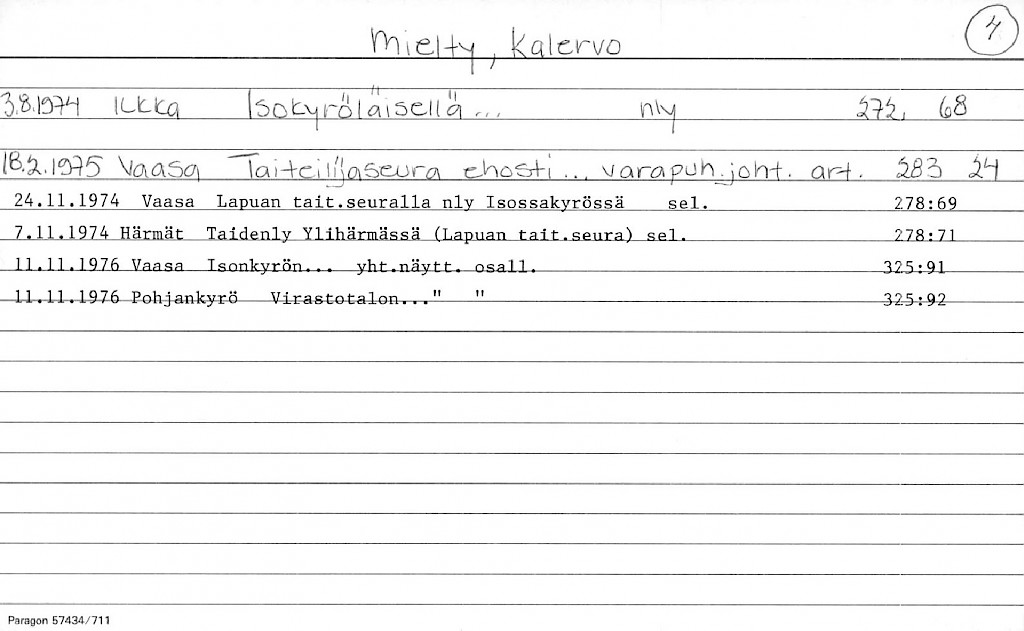 Mielty, Kalervo
4
3.8.1974 Ilkka Isokyröläisellä... nly 272, 68
18.2.1975 Vaasa Taiteilijaseura ehosti... varapuh.joht. art. 283 24
24.11.1974 Vaasa Lapuan tait.seuralla nly Isossakyrössä sel. 278:69
7.11.1974 Härmät Taidenly Ylihärmässä (Lapuan tait.seura) sel. 278:71
11.11.1976 Vaasa Isonkyrön... yht.näytt. osall. 325:91
11.11.1976 Pohjankyrö Virastotalon..." " 325:92
Paragon 57434/711